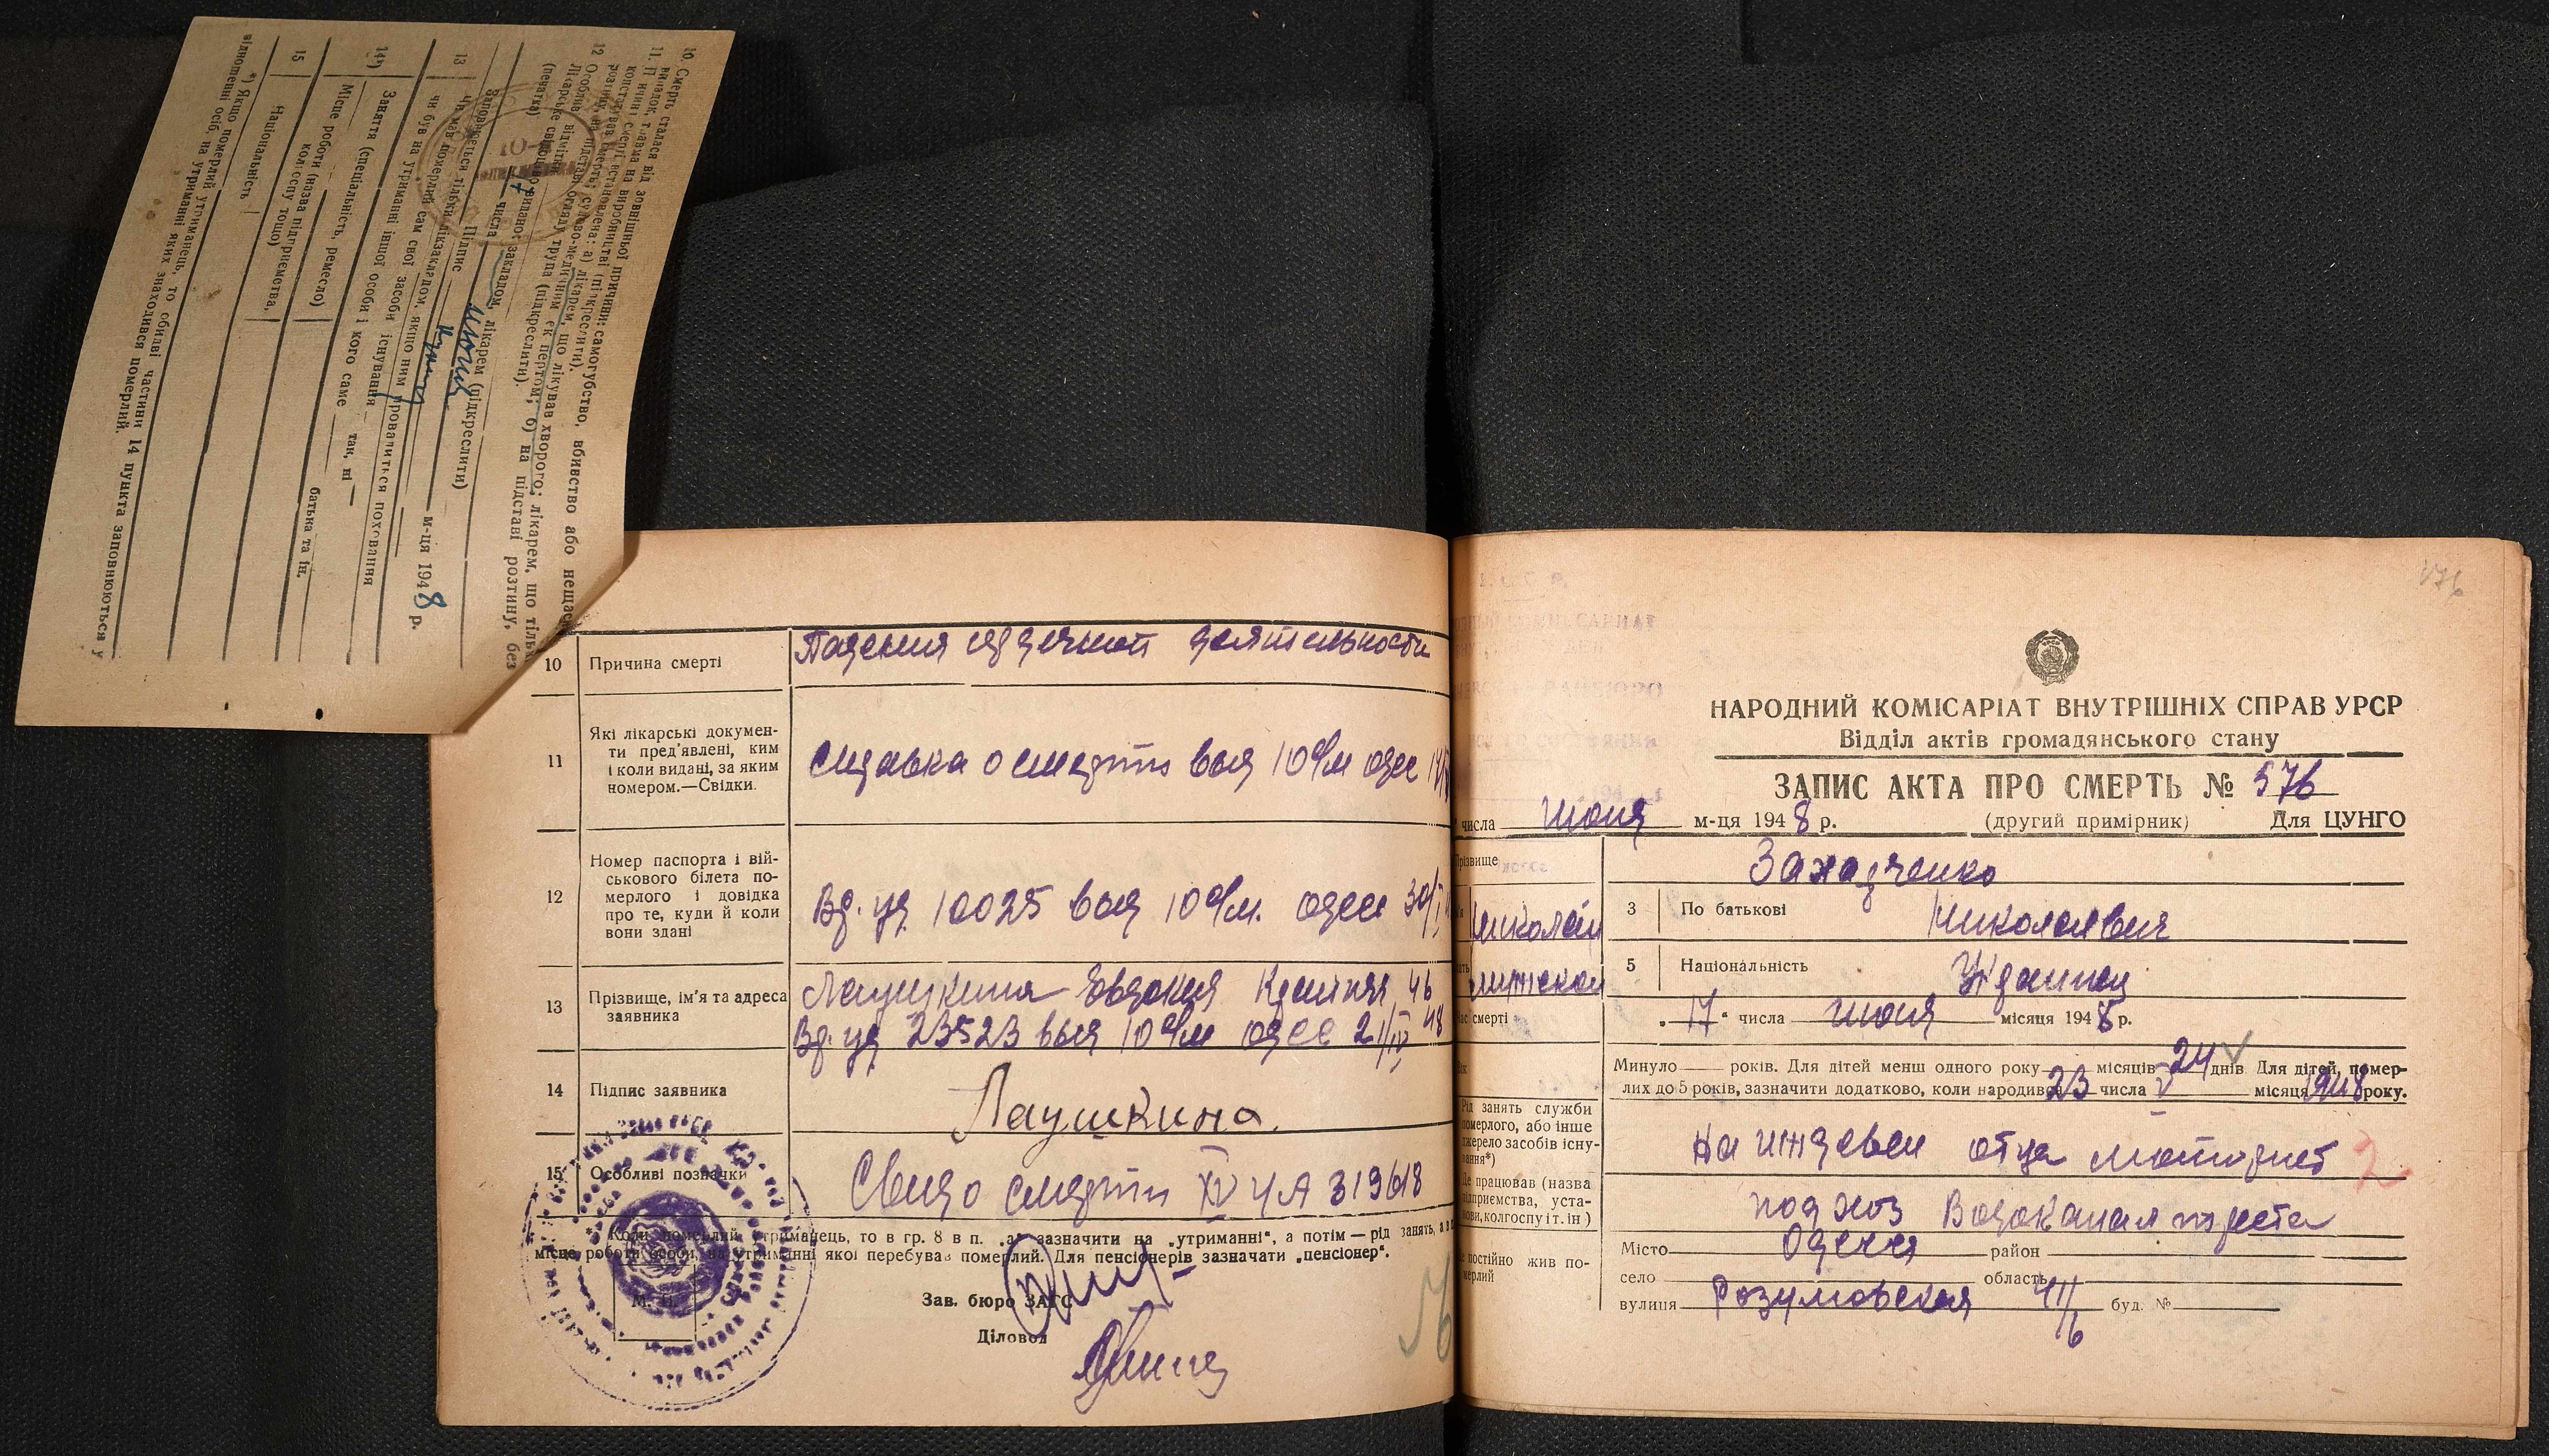 10. Смерть сталася від зовнішньої причини: самогубство, вбивство або нещас
11.
12
(печатка)
числа
м-ця 1948 р.
Підпис
13
чи мав померлий сам свої засоби існування
чи був на утриманні іншої особи і кого саме
так, ні
батька та ін.
14*)
Заняття (спеціальність, ремесло)
Місце роботи (назва підприємства,
колгоспу тощо)
15
Національність
*) Якщо померлий утриманець, то обидві частини 14 пункта заповнюються у
відношенні осіб, на утриманні яких знаходився померлий.
10 Причина смерті Падения сердечной деятельности
11 Які лікарські докумен-
ти пред’явлені, ким
і коли видані, за яким
номером.—Свідки.
справка о смерти выд 10 о/м одес
12 Номер паспорта і вій-
ськового білета по-
мерлого і довідка
про те, куди й коли
вони здані
10025 выд 10 о/м. одес 30/
13 Прізвище, ім’я та адреса
заявника
Лаушкина Евдокия 46
23523 выд 10 о/м одес 21/IV 48
14 Підпис заявника Лаушкина.
15 Особливі позначки
Свид о смерти XV ЧА 319618
*) Коли померлий утриманець, то в гр. 8 в п. „а“ зазначити на „утриманні“, а потім — рід занять, а в
місце роботи особи, на утриманні якої перебував померлий. Для пенсіонерів зазначати „пенсіонер“.
М. П.
Зав. бюро ЗАГС
Діловод
176
НАРОДНИЙ КОМІСАРІАТ ВНУТРІШНІХ СПРАВ УРСР
Відділ актів громадянського стану
ЗАПИС АКТА ПРО СМЕРТЬ № 576
числа июня м-ця 1948 р. (другий примірник) Для ЦУНГО
Прізвище Захарченко
Николай 3 По батькові Николаевич
мужской 5 Національність Украинец
Час смерті „17“ числа июня місяця 1948 р.
Минуло років. Для дітей менш одного року місяців 24 днів. Для дітей, помер-
лих до 5 років, зазначити додатково, коли народився 23 числа V місяця 1948 року.
Рід занять служби
померлого, або інше
джерело засобів існу-
вання*)
на иждевен отца 2
Де працював (назва
підприємства, уста-
нови, колгоспу і т. ін)
под хоз Водоканал треста
Де постійно жив по-
мерлий
Місто Одесса район
село область
вулиця Розумовская 41/6 буд. №